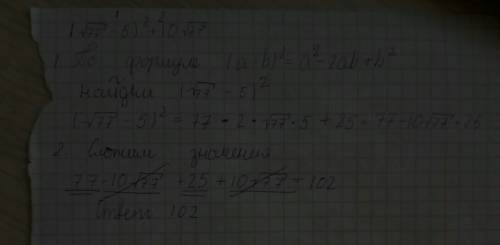 (√77 - 5)² + 10√77
1. По формуле (a-b)² = a² - 2ab + b²
найдём (√77 - 5)²
(√77 - 5)² = 77 - 2 * √77 * 5 + 25 = 77 - 10√77 + 25
2. Сложим значения
77 - 10√77 + 25 + 10√77 = 102
Ответ 102